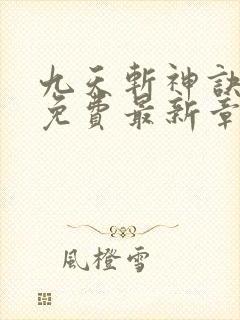 九天斬神訣
免費最新章
風橙雪